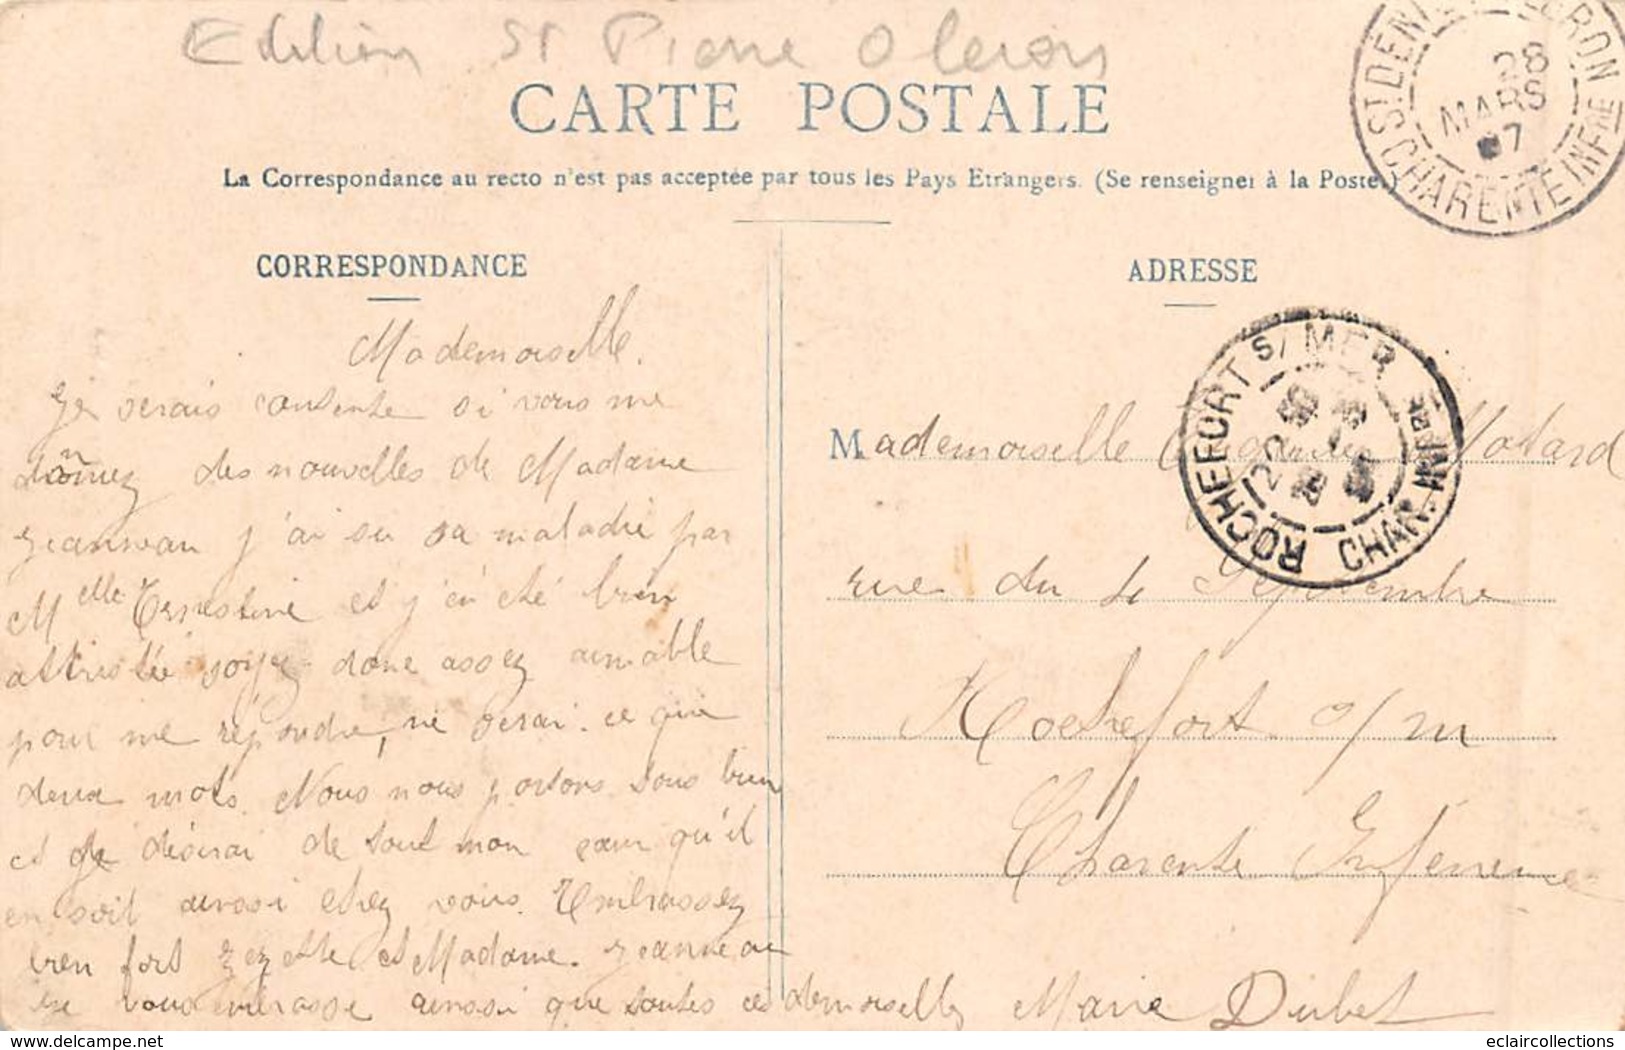 Edition St Pierre Oleron
CARTE POSTALE
La Correspondance au recto n'est pas acceptée par tous les Pays Etrangers. (Se renseigner à la Poste.)
ST DENIS D'OLERON
28
MARS
07
CHARENTE INFRE
CORRESPONDANCE
Mademoiselle.
Je serais contente si vous me
donnez des nouvelles de Madame
Jeanneau j'ai su sa maladie par
Melle Ernestine et j'en été bien
attristée soyez donc assez aimable
pour me répondre, ne serai ce que
deux mots. Nous nous portons tous bien
et Je désirai de tout mon cœur qu'il
en soit ainsi chez vous. Embrassez
bien fort Zezette et Madame Jeanneau
je vous embrasse ainsi que toutes ces demoiselles Marie Dubet
ADRESSE
ROCHEFORT S/ MER
22
CHAR. INFRE
Mademoiselle Motard
rue du 4 Septembre
Rochefort s/m
Charente Inférieure
eclaircollections